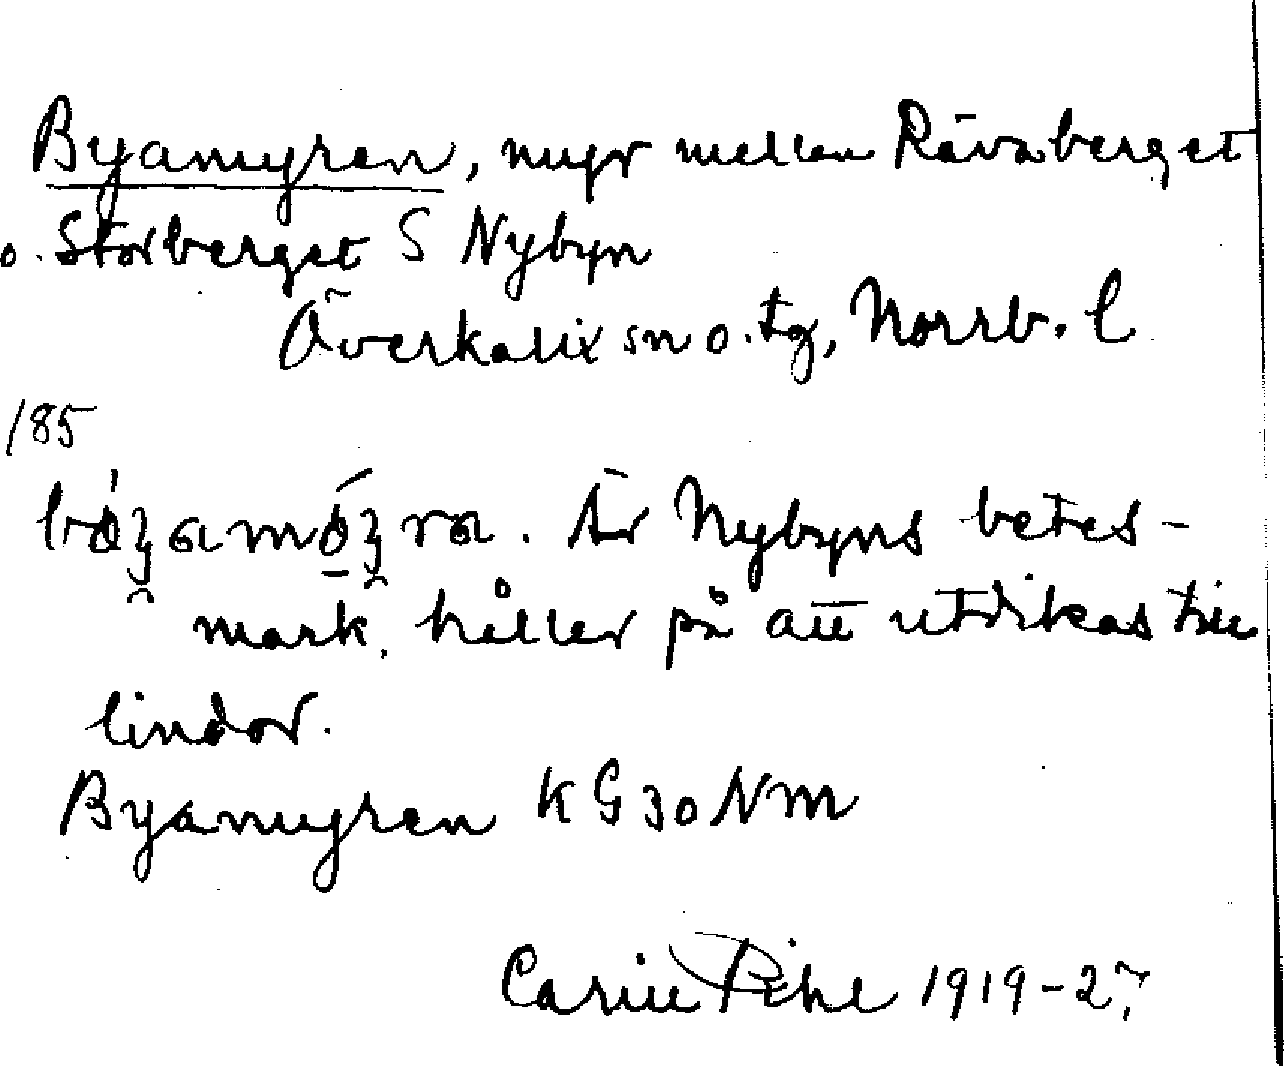 Byamyren, myr mellan Rävaberget
o. Storberget S Nybyn
Överkalix sn o. tg, Norrb. l
185
Är Nybyns betes-
mark, håller på att utdikas till
lindor.
Byamyren KG 30 NM
Carin Pihl 1919-27